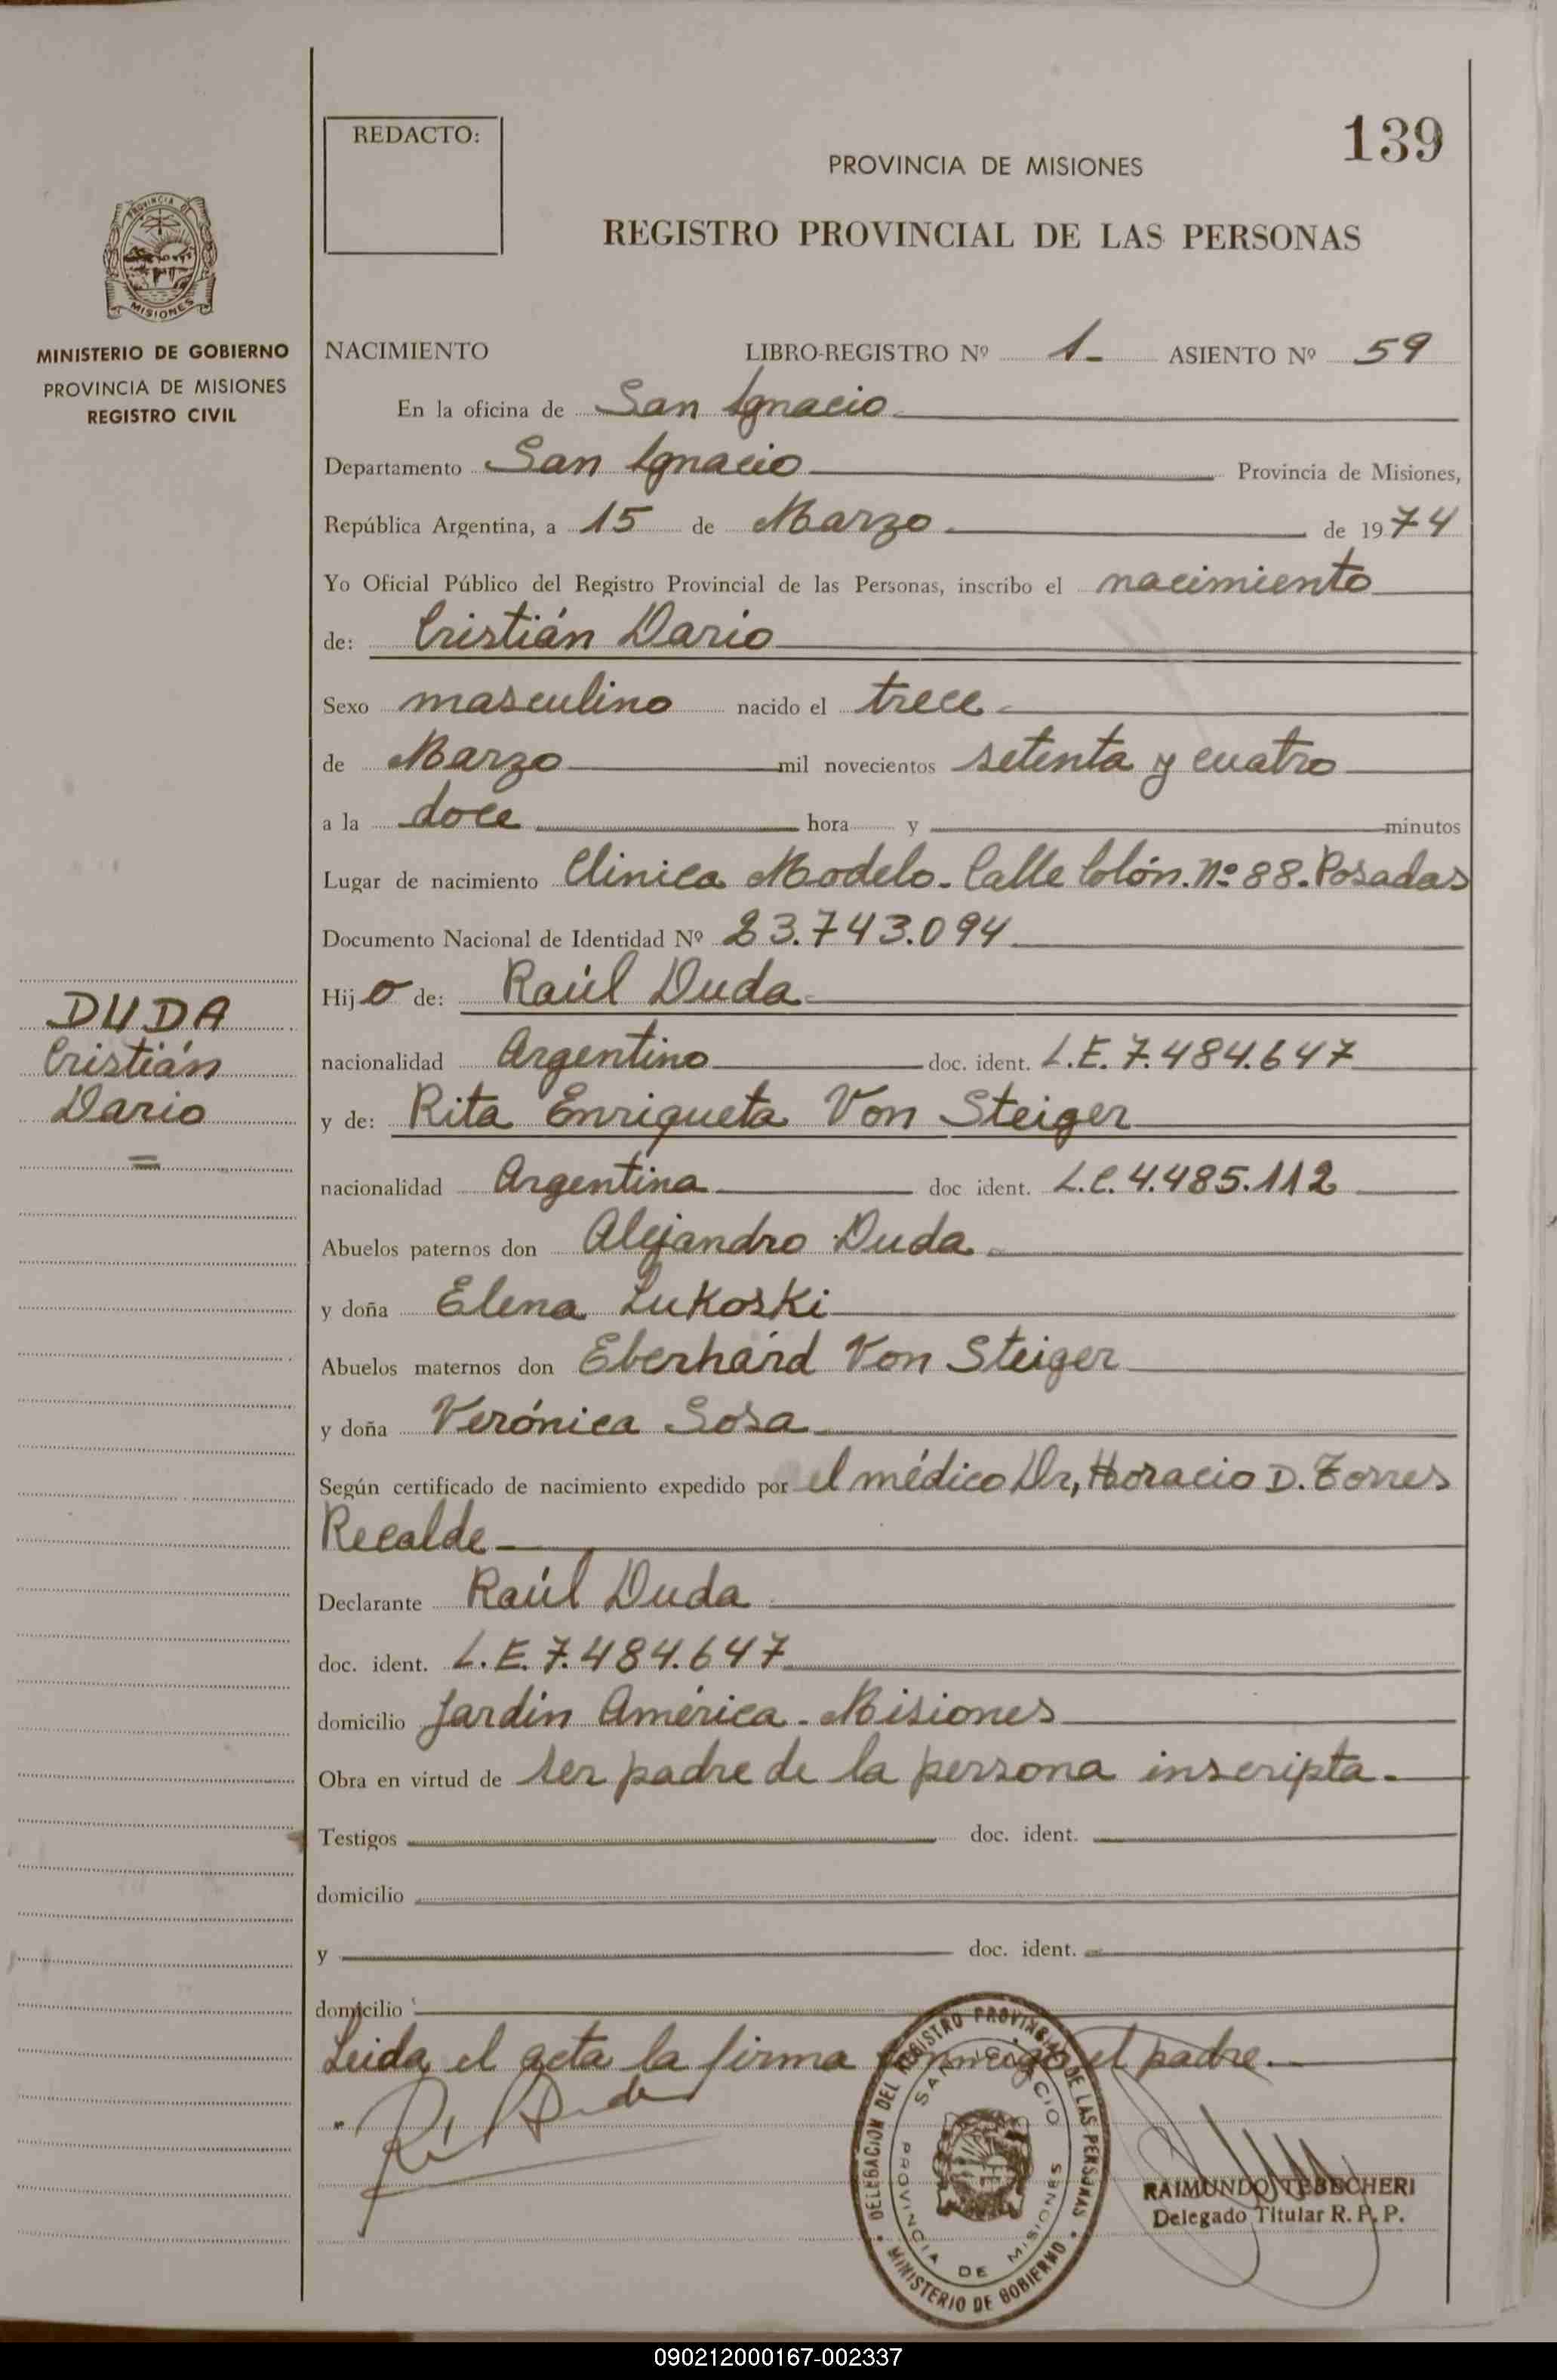 REDACTO:
139
PROVINCIA DE MISIONES
REGISTRO PROVINCIAL DE LAS PERSONAS
PROVINCIA DE
MISIONES
MINISTERIO DE GOBIERNO
PROVINCIA DE MISIONES
REGISTRO CIVIL
NACIMIENTO LIBRO-REGISTRO Nº 1- ASIENTO Nº 59
En la oficina de San Ignacio
Departamento San Ignacio Provincia de Misiones,
República Argentina, a 15 de Marzo de 1974
Yo Oficial Público del Registro Provincial de las Personas, inscribo el nacimiento
de: Cristián Dario
Sexo masculino nacido el trece
de Marzo mil novecientos setenta y cuatro
a la doce hora y minutos
Lugar de nacimiento Clinica Modelo. Calle Colón. Nº 88. Posadas
Documento Nacional de Identidad Nº 23.743.094
Hijo de: Raúl Duda
nacionalidad Argentino doc. ident. L.E. 7.484.647
y de: Rita Enriqueta Von Steiger
nacionalidad Argentina doc ident. L.C. 4.485.112
Abuelos paternos don Alejandro Duda
y doña Elena Lukoski
Abuelos maternos don Eberhárd Von Steiger
y doña Verónica Sosa
Según certificado de nacimiento expedido por el médico Dr, Horacio D. Torres
Recalde
Declarante Raúl Duda
doc. ident. L.E. 7.484.647
domicilio Jardin América - Misiones
Obra en virtud de ser padre de la persona inscripta.
Testigos doc. ident.
domicilio
y doc. ident.
domicilio
Leida el acta la firma conmigo el padre.
DUDA
Cristián
Dario
DELEGACION DEL REGISTRO PROVINCIAL DE LAS PERSONAS
SAN IGNACIO
PROVINCIA DE MISIONES
MINISTERIO DE GOBIERNO
RAIMUNDO TEBECHERI
Delegado Titular R. P. P.
090212000167-002337